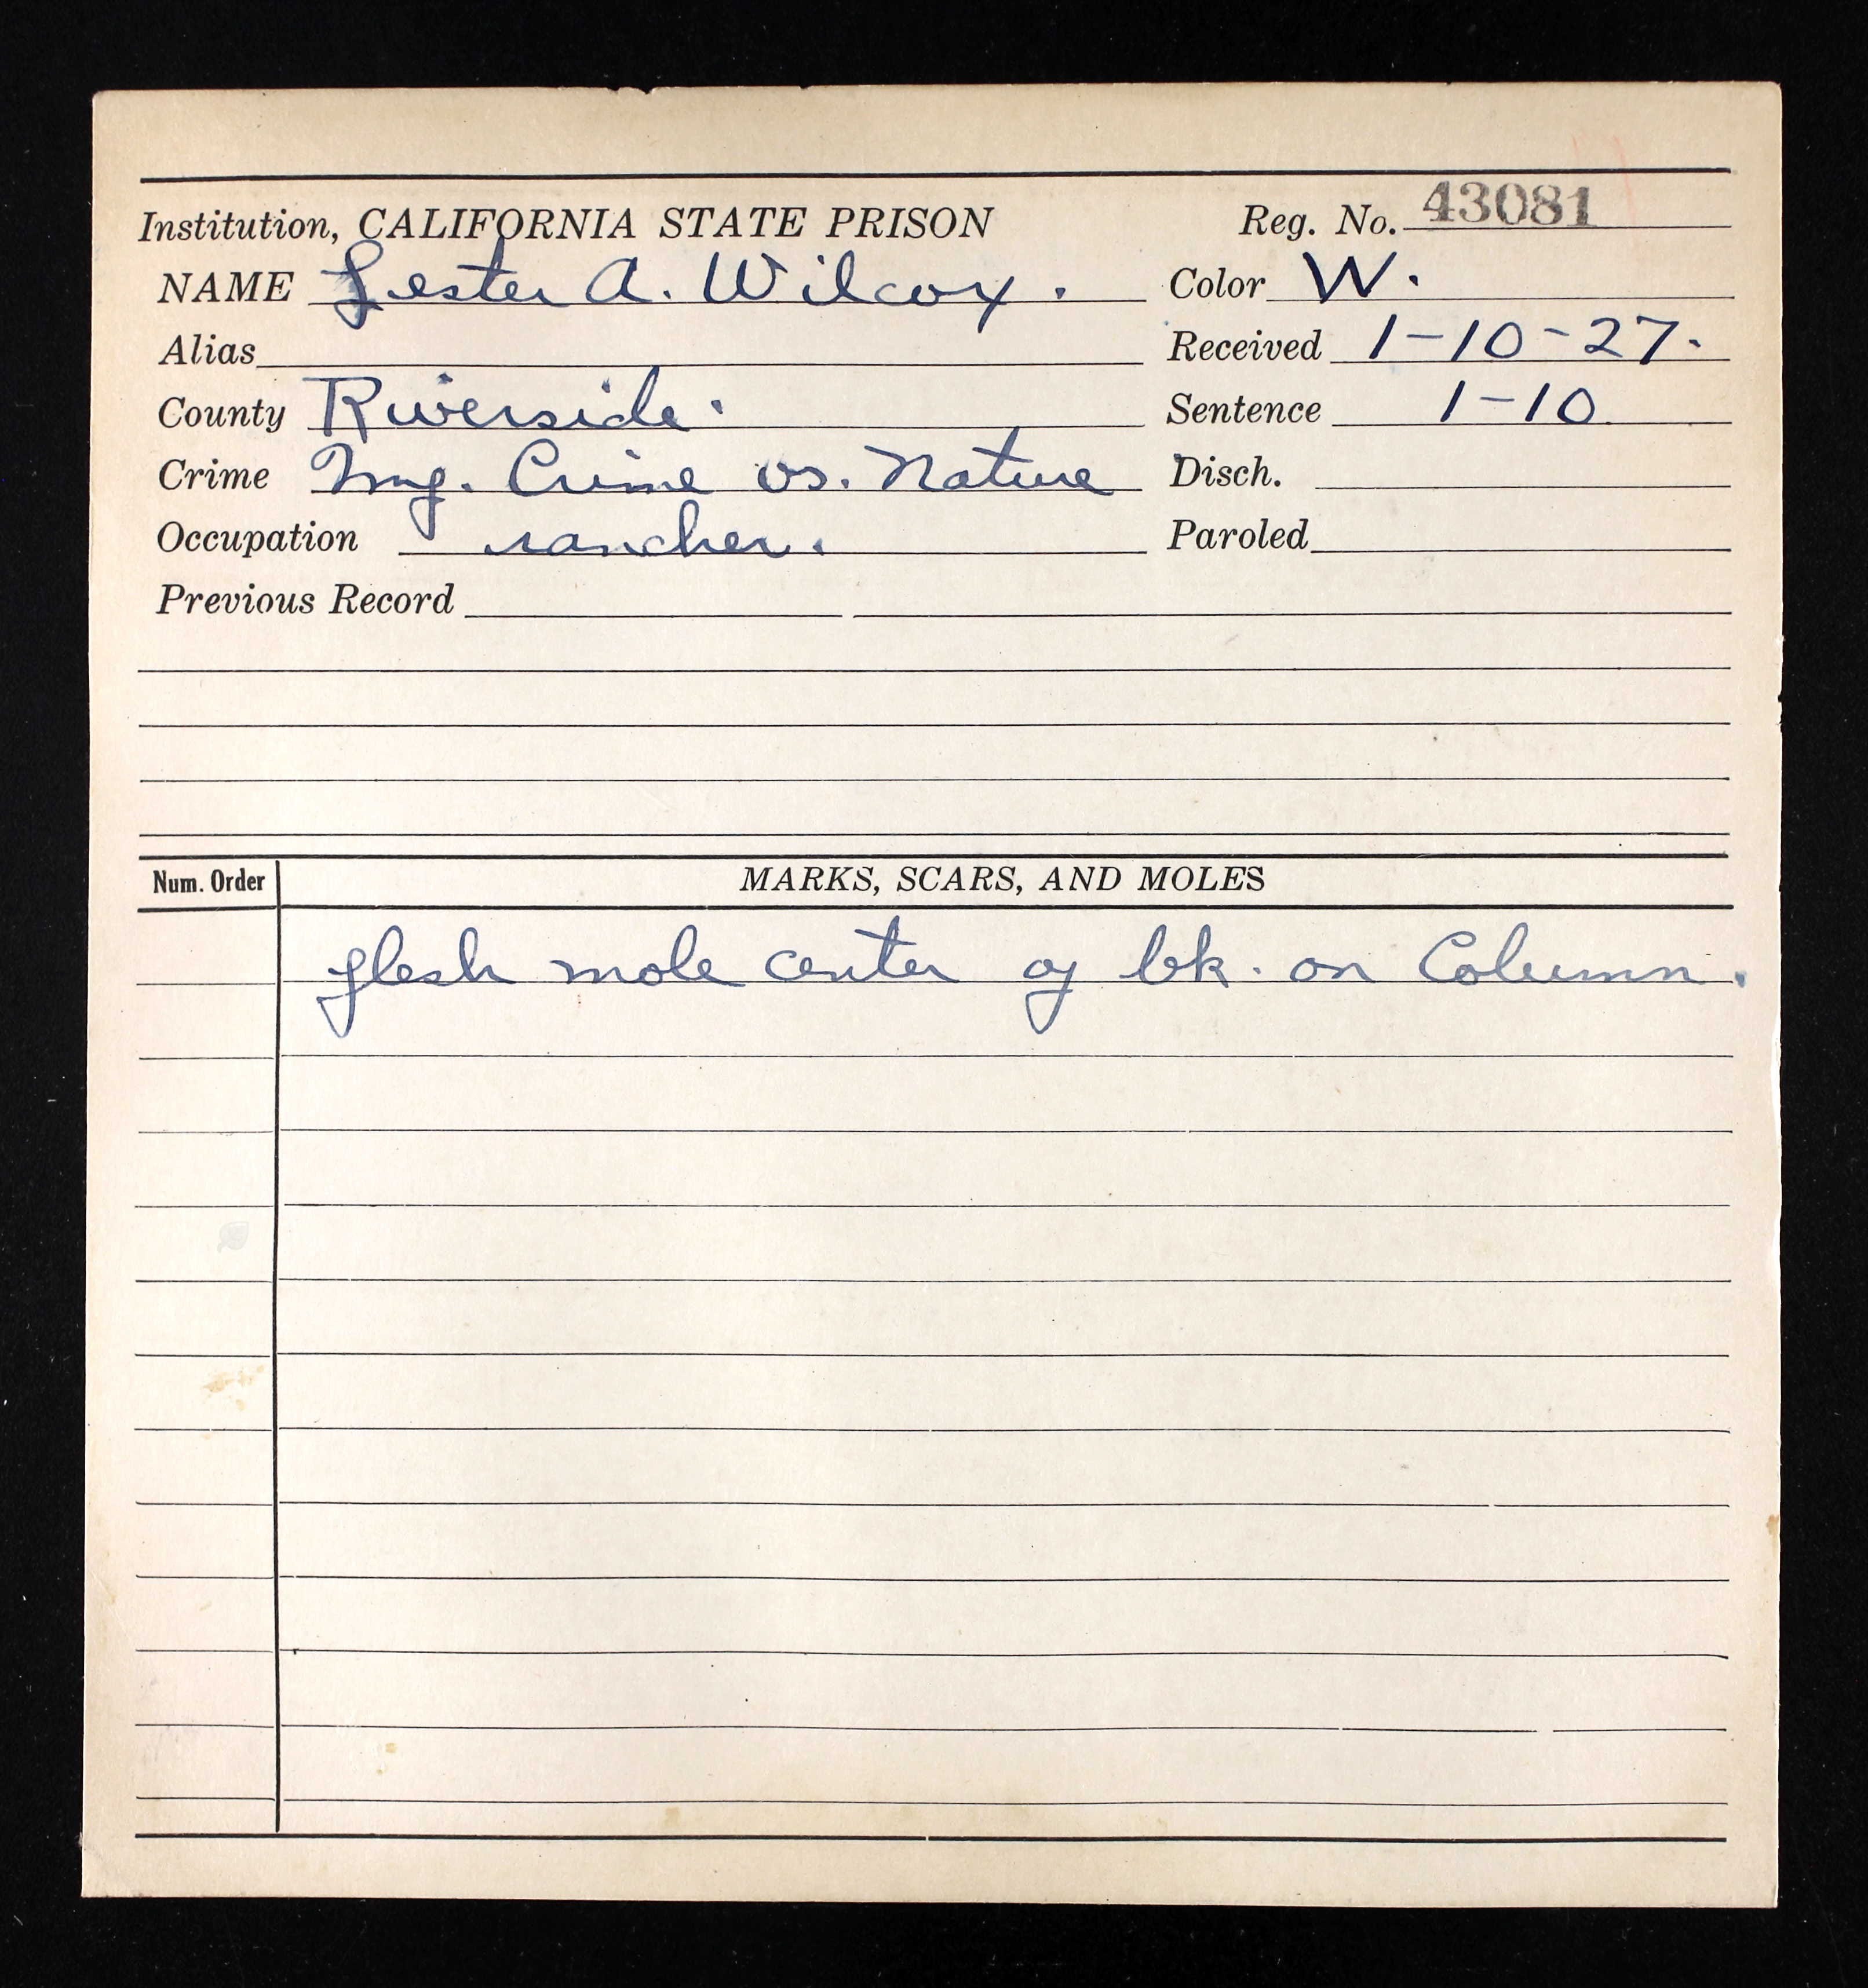 Institution, CALIFORNIA STATE PRISON Reg. No. 43081
NAME Lester A. Wilcox. Color W.
Alias Received 1-10-27.
County Riverside. Sentence 1-10
Crime Crime vs. Nature Disch.
Occupation rancher. Paroled
Previous Record
Num. Order MARKS, SCARS, AND MOLES
flesh mole center of bk. on Column.